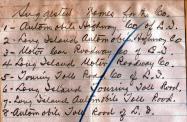 Suggested Names for R. Co.
1- Automobile Highway Co of L.I.
2- Long Island Automobile Highway Co.
3- Motor Car Roadway Co of L.I.
4- Long Island Motor Roadway Co.
5- Touring Toll Road Co of L.I.
6- Long Island Touring Toll Road.
7- Long Island Automobile Toll Road.
8- Automobile Toll Road of L.I.